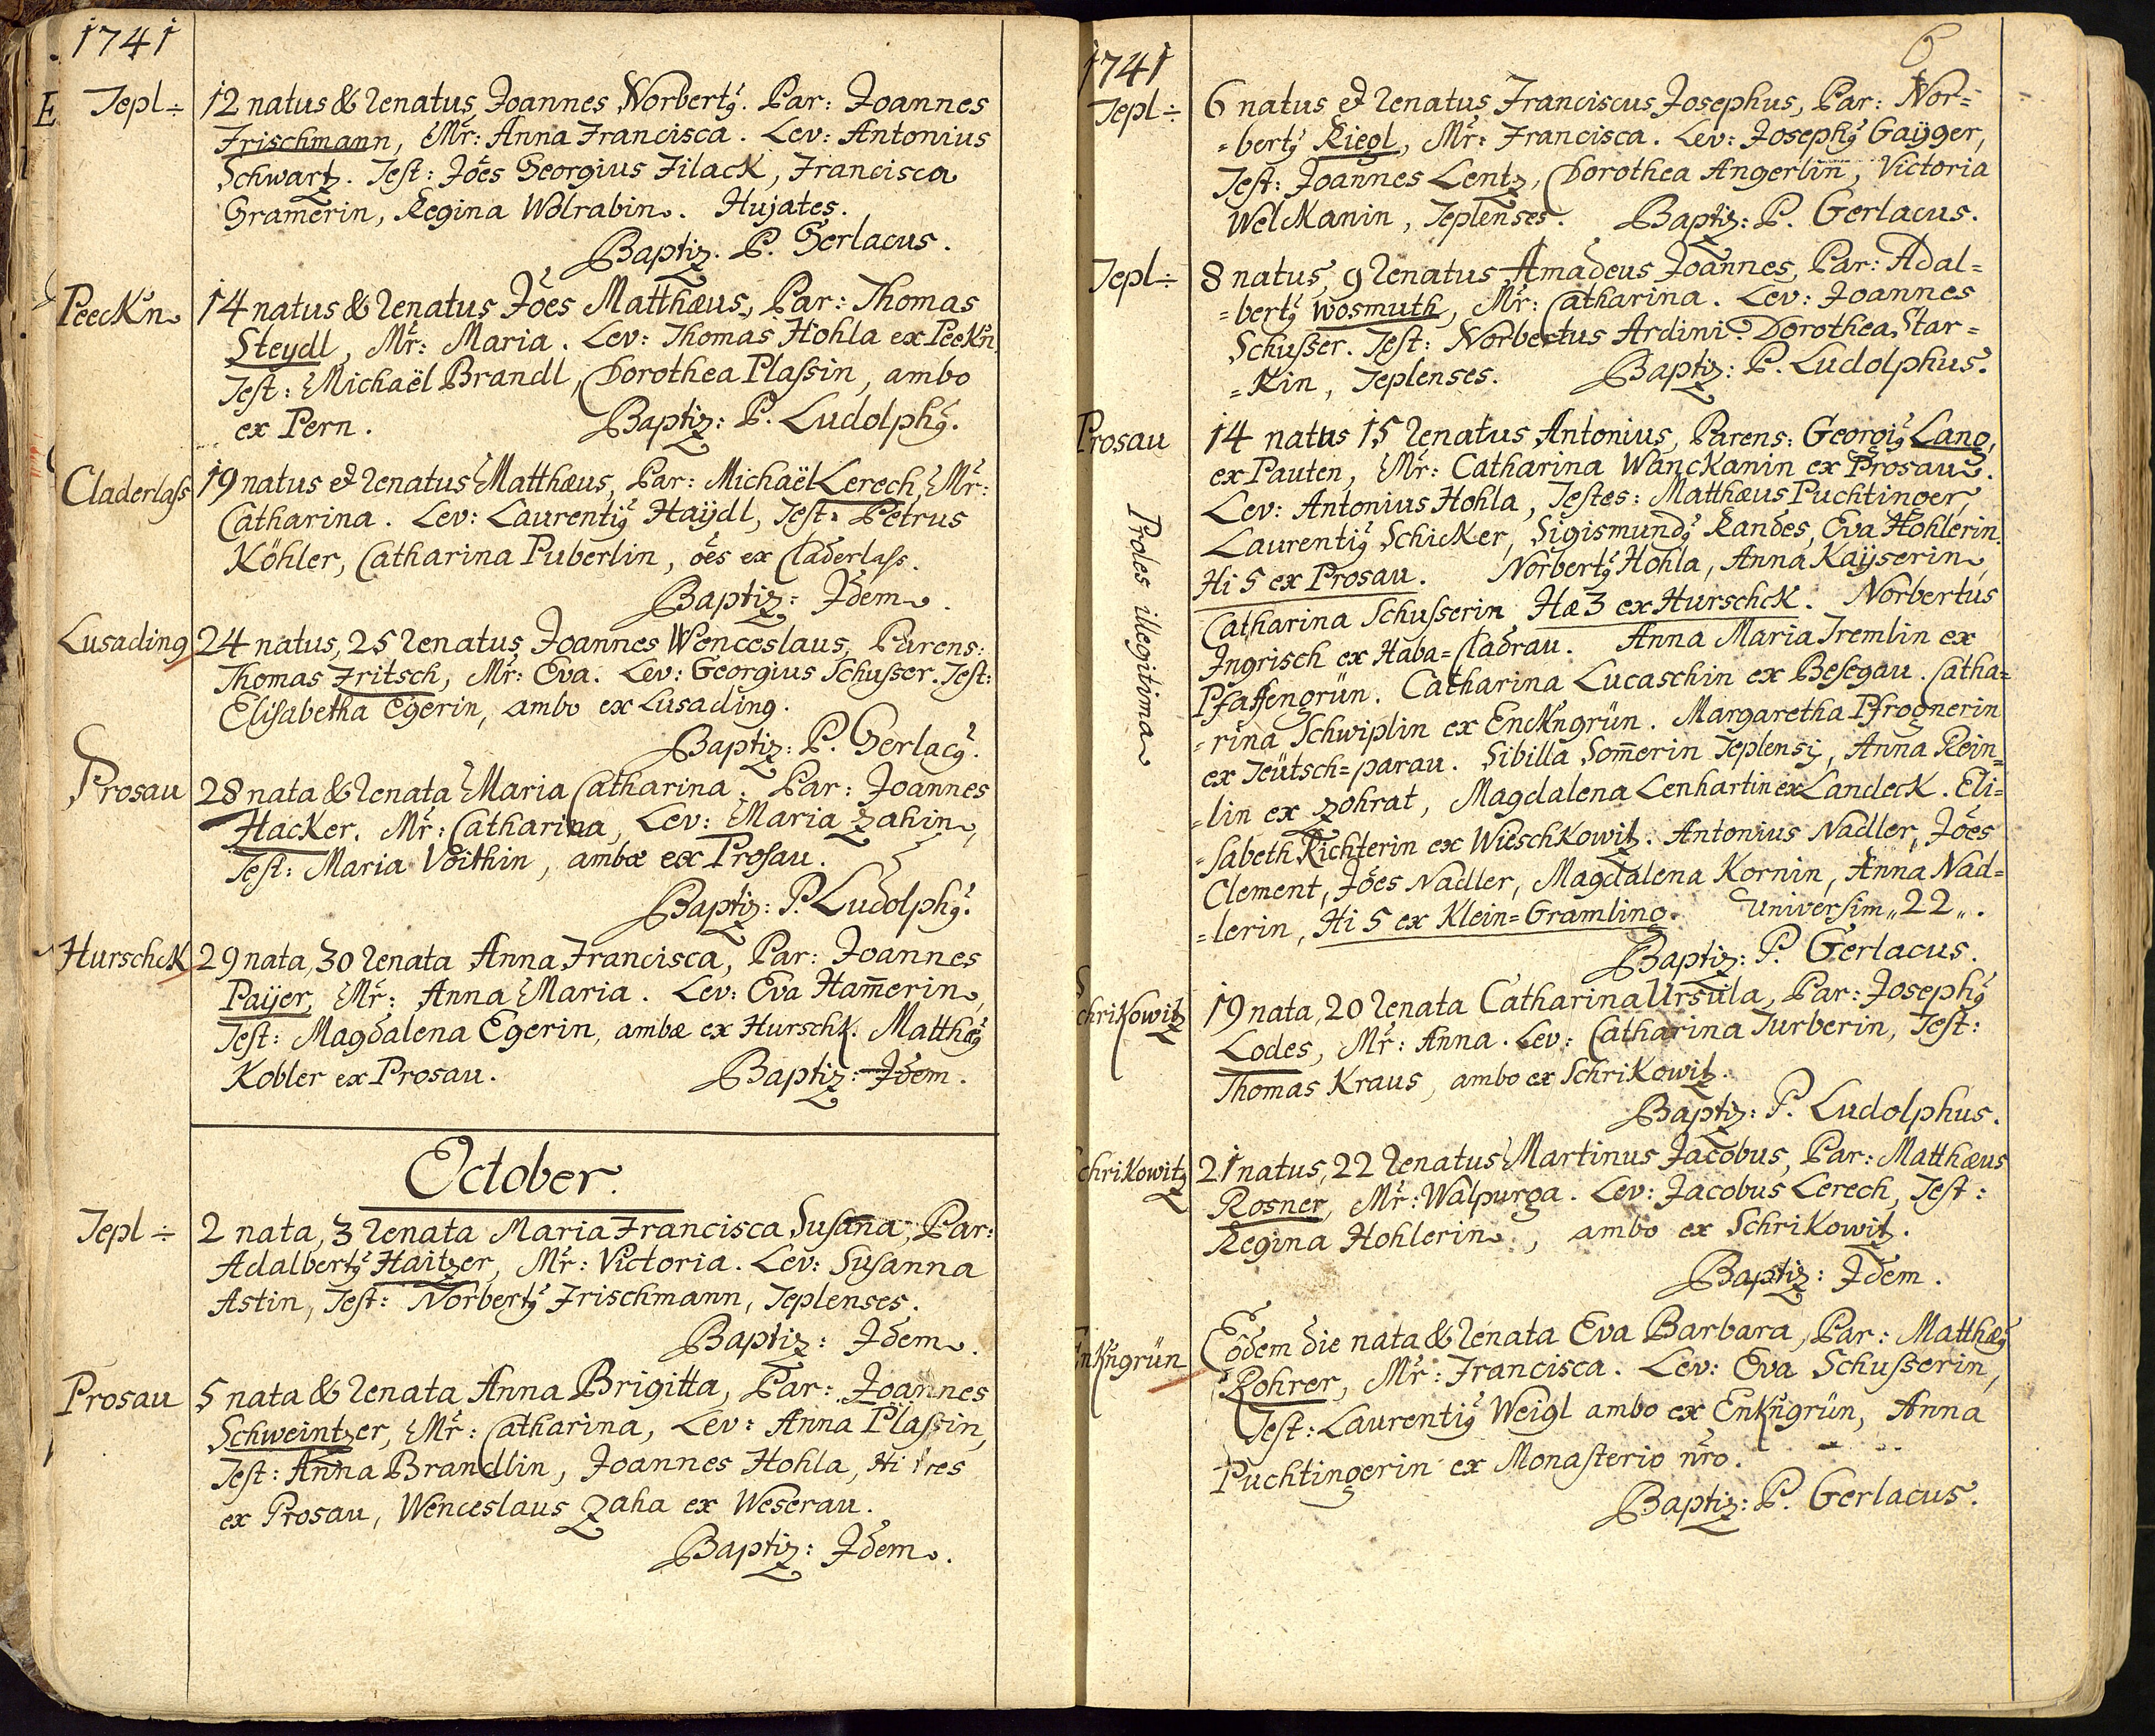 1741
Tepl ÷ 12 natus & renatus Joannes Norbertꝰ. Par: Joannes
Frischmann, Mr̃: Anna Francisca. Lev: Antonius
Schwartz. Test: Jo͠es Georgius Filack, Francisca
Gramerin, Regina Wolrabin. Hujates.
Baptiz. P. Gerlacus.
Peeck̃n 14 natus & renatus Jo͠es Matthæus, Par: Thomas
Steydl, Mr̃: Maria. Lev: Thomas Hohla ex Peek̃n
Test: Michaël Brandl, Dorothea Plaßin, ambo
ex Pern. Baptiz: P. Ludolphꝰ.
Claderlaß 19 natus et renatus Matthæus, Par: Michaël Lerech, Mr̃:
Catharina. Lev: Laurentiꝰ Haÿdl, Test: Petrus
Köhler, Catharina Puberlin, o͠es ex Claderlass.
Baptiz: Idem.
Lusading 24 natus, 25 renatus Joannes Wenceslaus, Parens:
Thomas Fritsch, Mr̃: Eva. Lev: Georgius Schusser. Test:
Elisabetha Egerin, ambo ex Lusading.
Baptiz: P. Gerlacꝰ.
Prosau 28 nata & renata Maria Catharina. Par: Joannes
Hacker. Mr̃: Catharina, Lev: Maria Zahin,
Test: Maria Voithin, ambæ ex Prosau.
Baptiz: P. Ludolphꝰ.
Hurschck 29 nata, 30 renata Anna Francisca, Par: Joannes
Paÿer, Mr̃: Anna Maria. Lev: Eva Ham̄erin,
Test: Magdalena Egerin, ambæ ex Hurschk. Matthæꝰ
Kobler ex Prosau. Baptiz: Idem.
October.
Tepl ÷ 2 nata, 3 renata Maria Francisca Susana, Par:
Adalbertꝰ Haitzer, Mr̃: Victoria. Lev: Susanna
Astin, Test: Norbertꝰ Frischmann, Teplenses.
Baptiz: Idem.
Prosau 5 nata & renata Anna Brigitta, Par: Joannes
Schweintzer, Mr̃: Catharina, Lev: Anna Plaßin,
Test: Anna Brandlin, Joannes Hohla, Hi tres
ex Prosau, Wenceslaus Zaha ex Weserau.
Baptiz: Idem.
6
1741
Tepl ÷ 6 natus et renatus Franciscus Josephus, Par: Nor=
=bertꝰ Riegl, Mr̃: Francisca. Lev: Josephꝰ Gaÿger,
Test: Joannes Lentz, Dorothea Angerlin, Victoria
Welckanin, Teplenses. Baptiz: P. Gerlacus.
Tepl ÷ 8 natus, 9 renatus Amadeus Joannes, Par: Adal=
=bertꝰ Wosmuth, Mr̃: Catharina. Lev: Joannes
Schusser. Test: Norbertus Ardini. Dorothea Star=
=Kin, Teplenses. Baptiz: P. Ludolphus.
Prosau 14 natus 15 renatus Antonius, Parens: Georgiꝰ Lang,
ex Pauten, Mr̃: Catharina Wanckanin ex Prosau.
Proles illegitima
Lev: Antonius Hohla, Testes: Matthæus Puchtinger,
Laurentiꝰ Schicker, Sigismundꝰ Randes, Eva Hohlerin.
Hi 5 ex Prosau. Norbertꝰ Hohla, Anna Kaÿserin,
Catharina Schusserin, Hæ 3 ex Hurschck. Norbertus
Ingrisch ex Haba=Cladrau. Anna Maria Tremlin ex
Pfaffengrün. Catharina Lucaschin ex Besegau. Catha=
=rina Schwiplin ex Enck̃ngrün. Margaretha Pfrognerin
ex Teütsch=parau. Sibilla Som̄erin Teplensi, Anna Rein=
=lin ex Zohrat, Magdalena Lenhartin ex Landeck. Eli=
=sabeth Richterin ex Wieschkowitz. Antonius Nadler, Jo͠es
Clement, Jo͠es Nadler, Magdalena Kornin, Anna Nad=
=lerin, Hi 5 ex Klein=Gramling. Universim „22„.
Baptiz: P. Gerlacus.
Schrikowitz 19 nata, 20 renata Catharina Ursula, Par: Josephꝰ
Lodes, Mr̃: Anna. Lev: Catharina Turberin, Test:
Thomas Kraus, ambo ex Schrikowitz.
Baptiz: P. Ludolphus.
chrikowitz 21 natus, 22 renatus Martinus Jacobus, Par: Matthæus
Rosner, Mr̃: Walpurga. Lev: Jacobus Lerech, Test:
Regina Hohlerin, ambo ex Schrikowitz.
Baptiz: Idem.
Enk̃ngrün Eodem die nata & renata Eva Barbara, Par: Matthæꝰ
Rohrer, Mr̃: Francisca. Lev: Eva Schusserin,
Test: Laurentiꝰ Weigl ambo ex Enk̃ngrün, Anna
Puchtingerin ex Monasterio nr̃o.
Baptiz: P. Gerlacus.